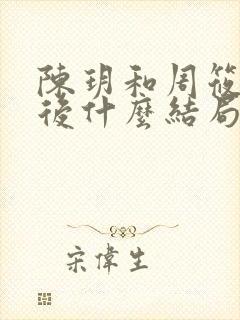 陳玥和周筱
後什麼結局
宋偉生